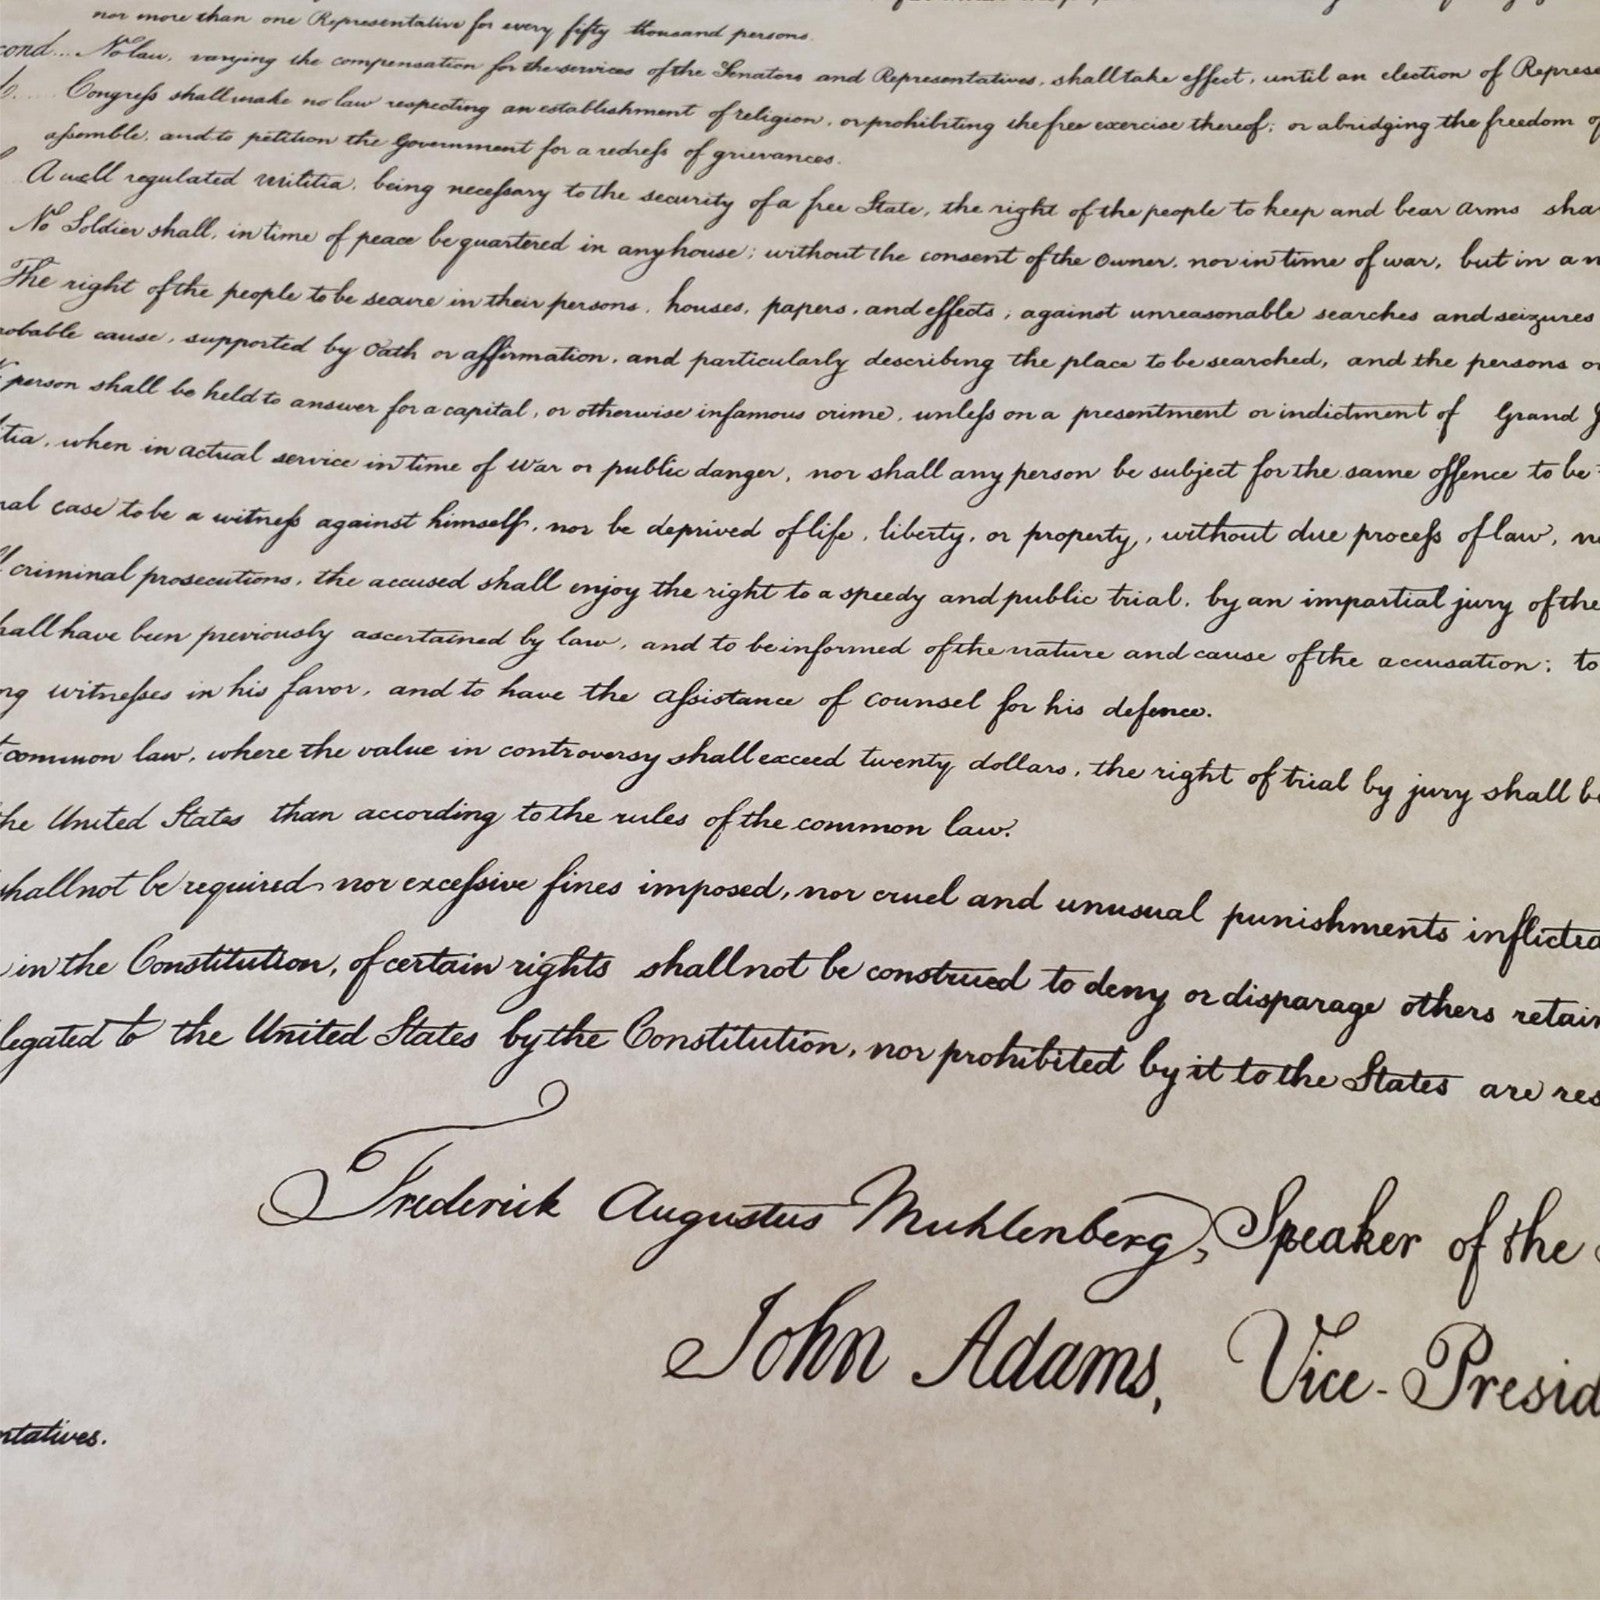 nor more than one Representative for every fifty thousand persons.
cond... No law, varying the compensation for the services of the Senators and Representatives, shall take effect, until an election of Represe
Congress shall make no law respecting an establishment of religion, or prohibiting the free exercise thereof; or abridging the freedom of
assemble, and to petition the Government for a redress of grievances.
A well regulated militia, being necessary to the security of a free State, the right of the people to keep and bear arms sha
No Soldier shall, in time of peace be quartered in any house; without the consent of the owner, nor in time of war, but in a m
The right of the people to be secure in their persons, houses, papers, and effects, against unreasonable searches and seizures
robable cause, supported by Oath or affirmation, and particularly describing the place to be searched, and the persons or
person shall be held to answer for a capital, or otherwise infamous crime, unless on a presentment or indictment of Grand J
itia, when in actual service in time of war or public danger, nor shall any person be subject for the same offence to be
nal case to be a witness against himself, nor be deprived of life, liberty, or property, without due process of law, n
l criminal prosecutions, the accused shall enjoy the right to a speedy and public trial, by an impartial jury of the
hall have been previously ascertained by law, and to be informed of the nature and cause of the accusation; to
ng witnesses in his favor, and to have the assistance of counsel for his defence.
t common law, where the value in controversy shall exceed twenty dollars, the right of trial by jury shall be
the United States than according to the rules of the common law.
shall not be required nor excessive fines imposed, nor cruel and unusual punishments inflicted
in the Constitution, of certain rights shall not be construed to deny or disparage others retain
legated to the United States by the Constitution, nor prohibited by it to the States are res
Frederick Augustus Muhlenberg, Speaker of the
John Adams, Vice-Presid
ntatives.